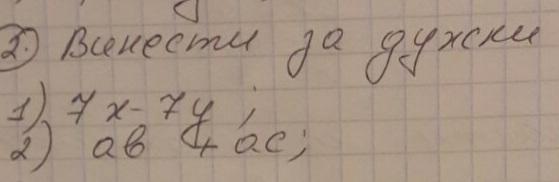 2. Винести за дужки
1) 7x - 7y;
2) ав + ас;